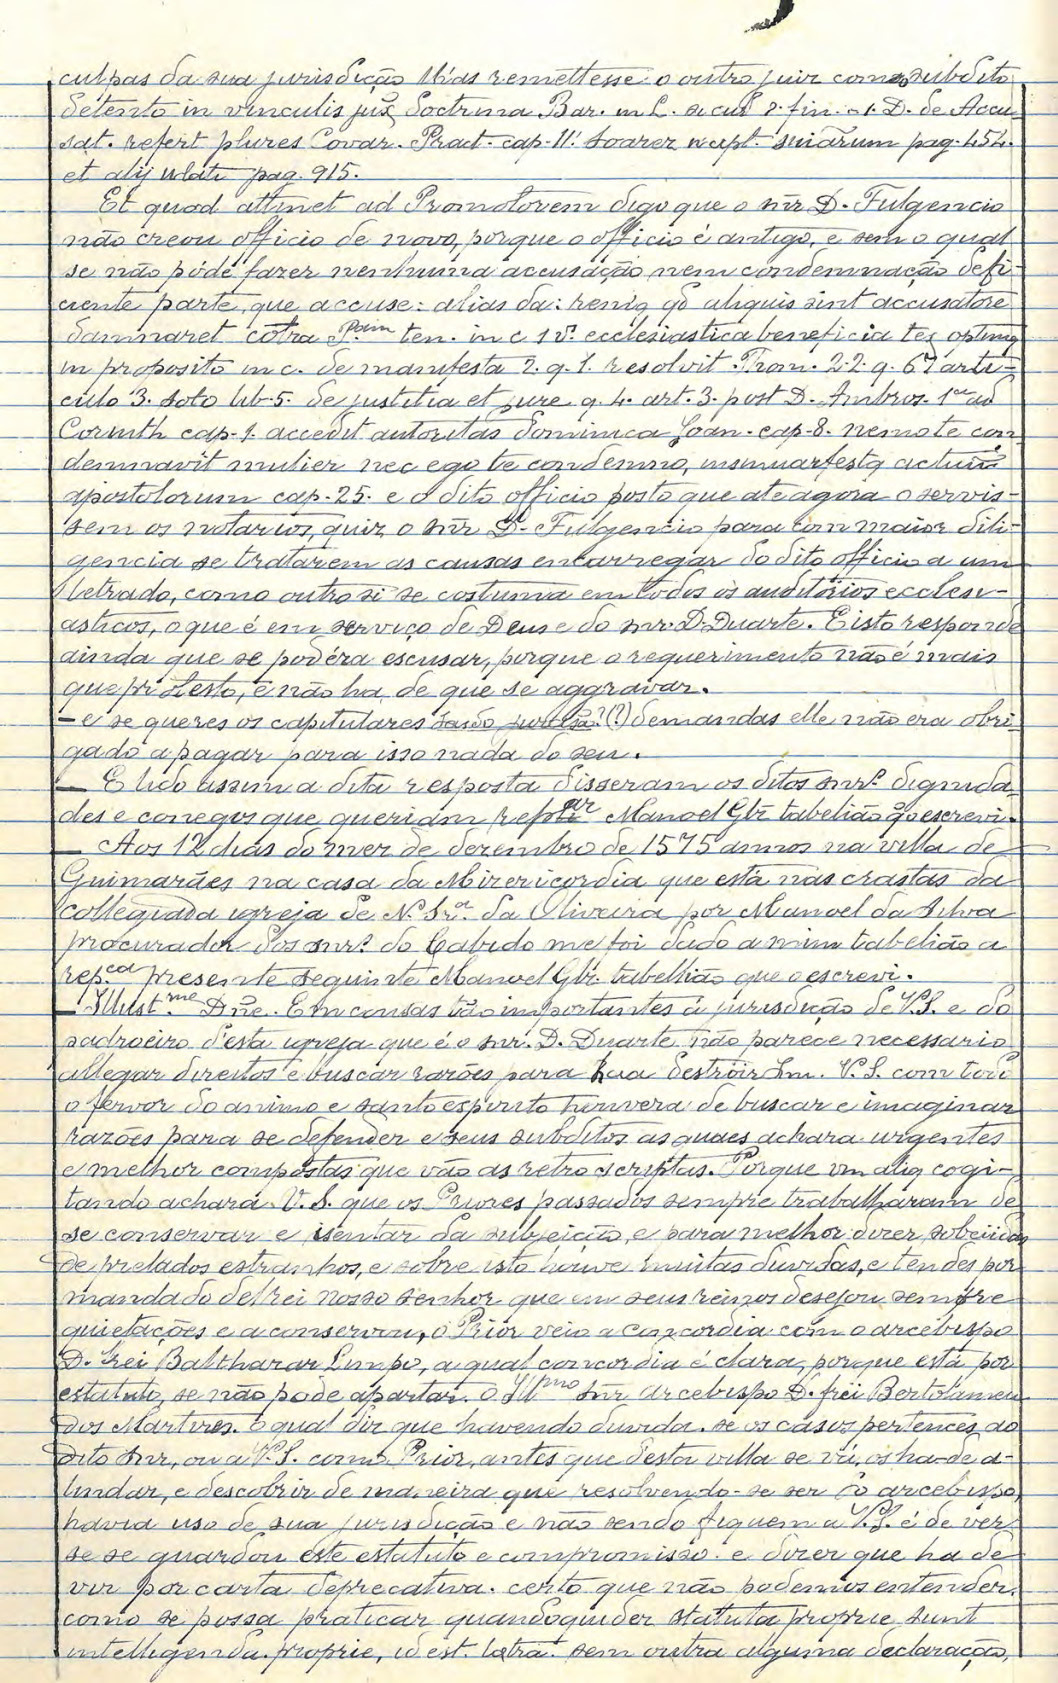 culpas da sua jurisdicção lh'as remettesse o outro juiz como subdito
detento in vinculis juxª doctrina Bar. in L. si cui § fin. D. de Accu-
sat. refert plures Covar. Pract. cap. 11. Soarez recept. pag. 454.
et alij ulati pag. 915.
Et quod attinet ad Promotorem digo que o snr D. Fulgencio
não creou officio de novo, porque o officio é antigo, e sem o qual
se não póde fazer nenhuma accusação nem condemnação defi-
ciente parte, que accuse: alias aliquis sint accusatore
damnaret cõtra ten. in c. 1 vº ecclesiastica beneficia
in proposito in c. de manifesta 2. q. 1. resolvit 2.2. q. 67 arti-
culo 3. Soto lib. 5. de justitia et jure q. 4. art. 3. post D. Ambros. 1ª ad
Corinth cap. 1. accedit autoritas dominica Joan. cap. 8. nemo te con-
demnavit mulier nec ego te condemno, actuũ
apostolorum cap. 25. e o dito officio posto que ate agora o servis-
sem os notarios, quiz o snr D. Fulgencio para com maior dili-
gencia se tratarem as causas encarregar do dito officio a um
letrado, como outro si se costuma em todos os auditorios ecclesi-
asticos, o que é em serviço de Deus e do snr. D. Duarte. E isto responde
ainda que se podéra escusar, porque o requerimento não é mais
que protesto, e não ha de que se aggravar.
– e se queres os capitulares (?) demandas elle não era obri-
gado a pagar para isso nada do seu.
– E lido assim a dita resposta disseram os ditos snrs. dignida-
des e conegos que queriam replicar Manoel Glz tabelião q̃ o escrevi.
– Aos 12 dias do mez de dezembro de 1575 annos na villa de
Guimarães na casa da Mizericordia que está nas crastas da
collegiada igreja de N. Srª. da Oliveira por Manoel da Silva
procurador dos snrs. do Cabido me foi dado a mim tabelião a
repca presente seguinte Manoel Glz. tabellião que o escrevi.
– Illustme Dñe. Em cousas tão importantes á jurisdicção de V.S. e do
padroeiro d'esta igreja que é o snr. D. Duarte não parece necessario
allegar direitos e buscar razões para destroir V.S. com todo
o fervor do animo e santo espirito houvera de buscar e imaginar
razões para se defender e seus subditos as quaes achara urgentes
e melhor compostas que vão as retro scriptas. Porque cogi-
tando achará V.S. que os Priores passados sempre trabalharam de
se conservar e isentar da subjeição, e para melhor dizer
de prelados estranhos, e sobre isto houve muitas duvidas, e tendes por
mandado delrei nosso senhor que em seus reinos desejou sempre
quietações e a conservou, o Prior veio a concordia com o arcebispo
D. frei Balthazar Limpo, a qual concordia é clara, porque está por
estatuto, se não pode apartar. O Illmo snr arcebispo D. frei Bertolameu
dos Martires. o qual diz que havendo duvida. se os casos pertences ao
dito snr, ou a V.S. como Prior, antes que desta villa se vá, os ha-de a-
lindar, e descobrir de maneira que resolvendo-se ser do arcebispo,
havia uso de sua jurisdicção e não sendo fiquem a V.S. é de ver
se se guardou este estatuto e compromisso. e dizer que ha de
vir por carta deprecativa. certo que não podemos entender.
como se possa praticar quandoquider statuta proprie sunt
intelligenda. proprie, id est. letra. sem outra alguma declaração,